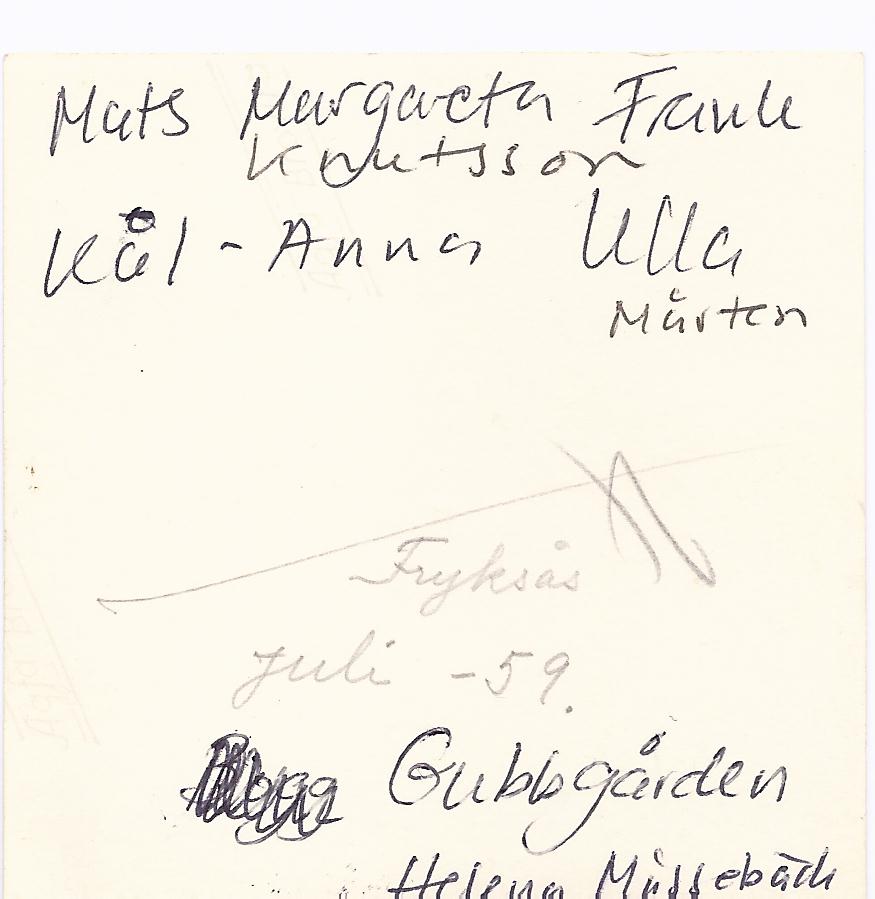 Mats Margareta Frank
Knutsson
Kål-Anna Ulla
Mårten
Fryksås
Juli -59.
Gubbgården
Helena Mässebäck